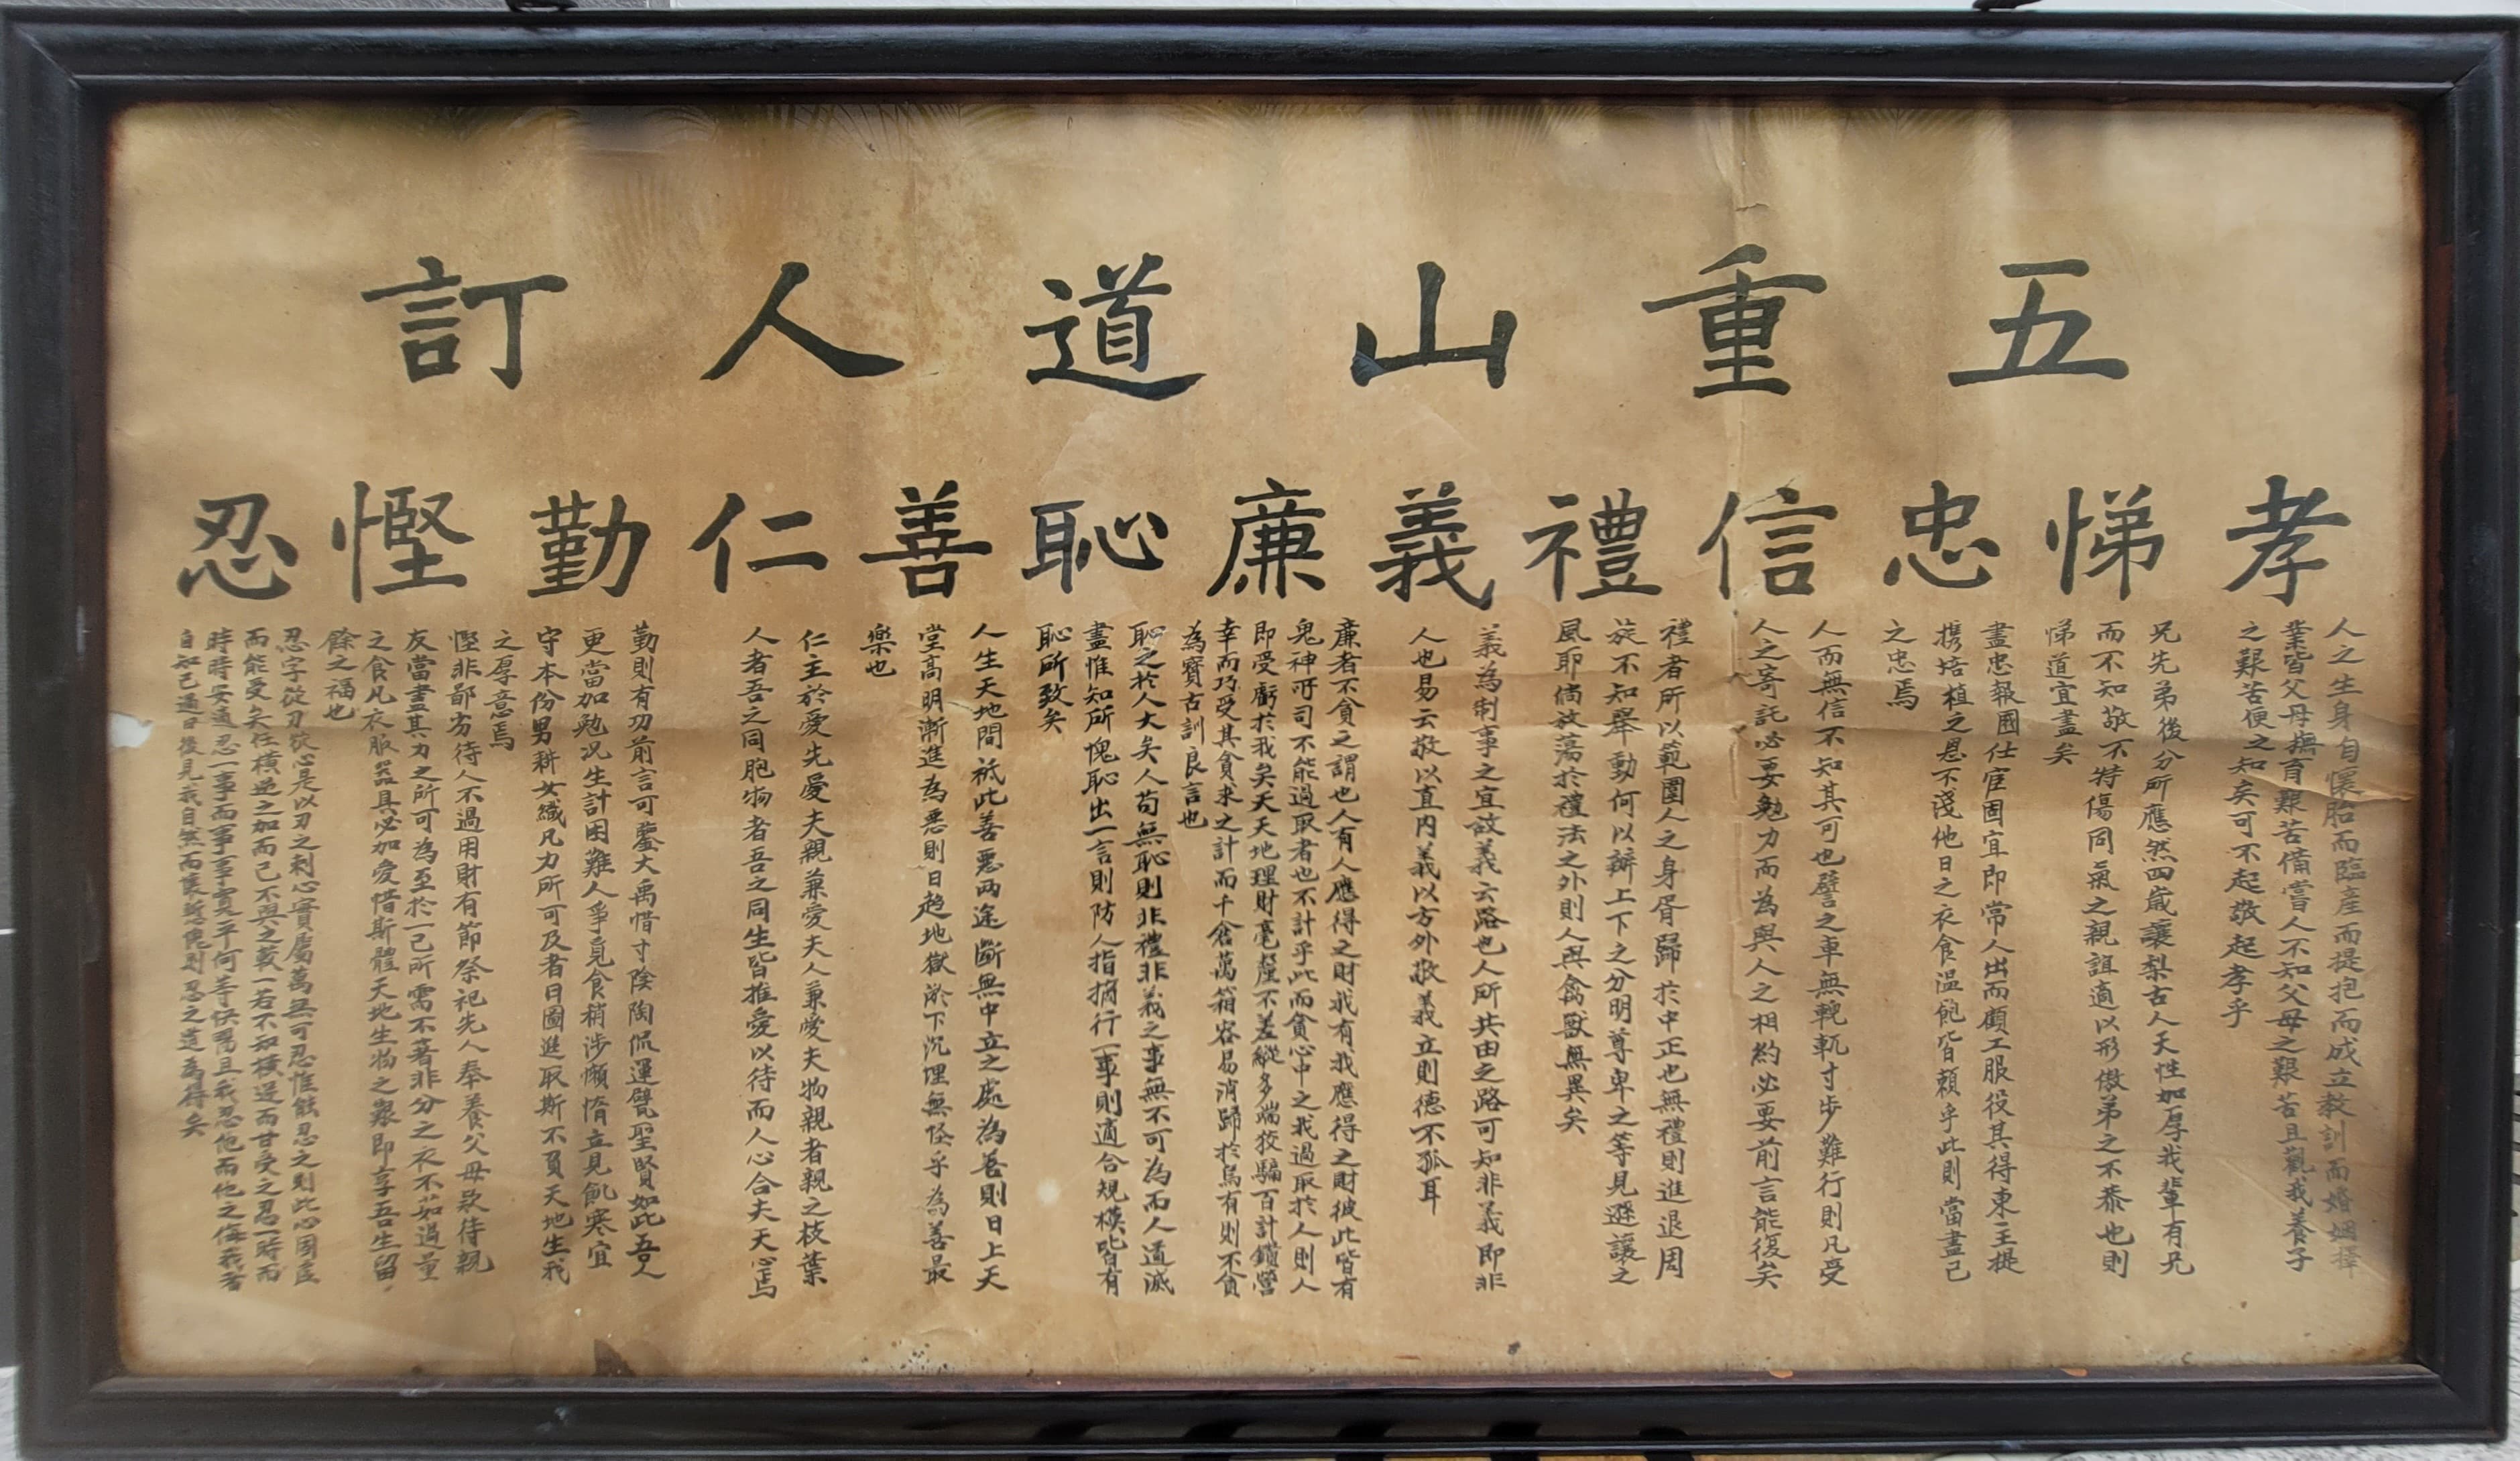 五重山道人訂
孝悌忠信禮義廉恥善仁勤慳忍
人之生身自懷胎而臨產而提抱而成立教訓而婚姻擇
業皆父母撫育艱苦備嘗人不知父母之艱苦且觀我養子
之艱苦便之知矣可不起敬起孝乎
兄先弟後分所應然四歲讓梨古人天性加厚我輩有兄
而不知敬不特傷同氣之親誼適以形傲弟之不恭也則
悌道宜盡矣
盡忠報國仕宦固宜即常人出而顧工服役其得東主提
携培植之恩不淺他日之衣食溫飽皆賴乎此則當盡己
之忠焉
人而無信不知其可也譬之車無輗軏寸步難行則凡受
人之寄託必要勉力而為與人之相約必要前言能復矣
禮者所以範圍人之身胥歸於中正也無禮則進退周
旋不知舉動何以辦上下之分明尊卑之等見遜讓之
風耶倘放蕩於禮法之外則人與禽獸無異矣
義為制事之宜故義云路也人所共由之路可知非義即非
人也易云敬以直內義以方外敬義立則德不孤耳
廉者不貪之謂也人有人應得之財我有我應得之財彼此皆有
鬼神所司不能過取者也不計乎此而貪心中之我過取於人則人
即受虧於我矣天天地理財毫釐不差縱多端狡騙百計鑽營
幸而巧受其貪求之計而千倉萬箱容易消歸於烏有則不貪
為寶古訓良言也
恥之於人大矣人苟無恥則非禮非義之事無不可為而人道滅
盡惟知所愧恥出一言則防人指摘行一事則適合規模皆有
恥所致矣
人生天地間祇此善惡兩途斷無中立之處為善則日上天
堂高明漸進為惡則日趨地獄淤下沉埋無怪乎為善最
樂也
仁主於愛先愛夫親兼愛夫人兼愛夫物親者親之枝葉
人者吾之同胞物者吾之同生皆推愛以待而人心合夫天心焉
勤則有功前言可鑒大禹惜寸陰陶侃運甓聖賢如此吾人
更當加勉况生計困難人爭覓食稍涉懶惰立見飢寒宜
守本份男耕女織凡力所可及者日圖進取斯不負天地生我
之厚意焉
慳非鄙吝待人不過用財有節祭祀先人奉養父母欵待親
友當盡其力之所可為至於一己所需不著非分之衣不茹過量
之食凡衣服器具必加愛惜斯體天地生物之艱即享吾生留
餘之福也
忍字從刀從心是以刃之刺心實屬萬無可忍惟能忍之則此心固
而能受矣任橫逆之加而己不與之較一若不知橫逆而甘受之忍一時而
時時安適忍一事而事事寬平何等快焉且我忍他而他之侮我者
自知己過日後見我自然而懷慙愧則忍之道為得矣